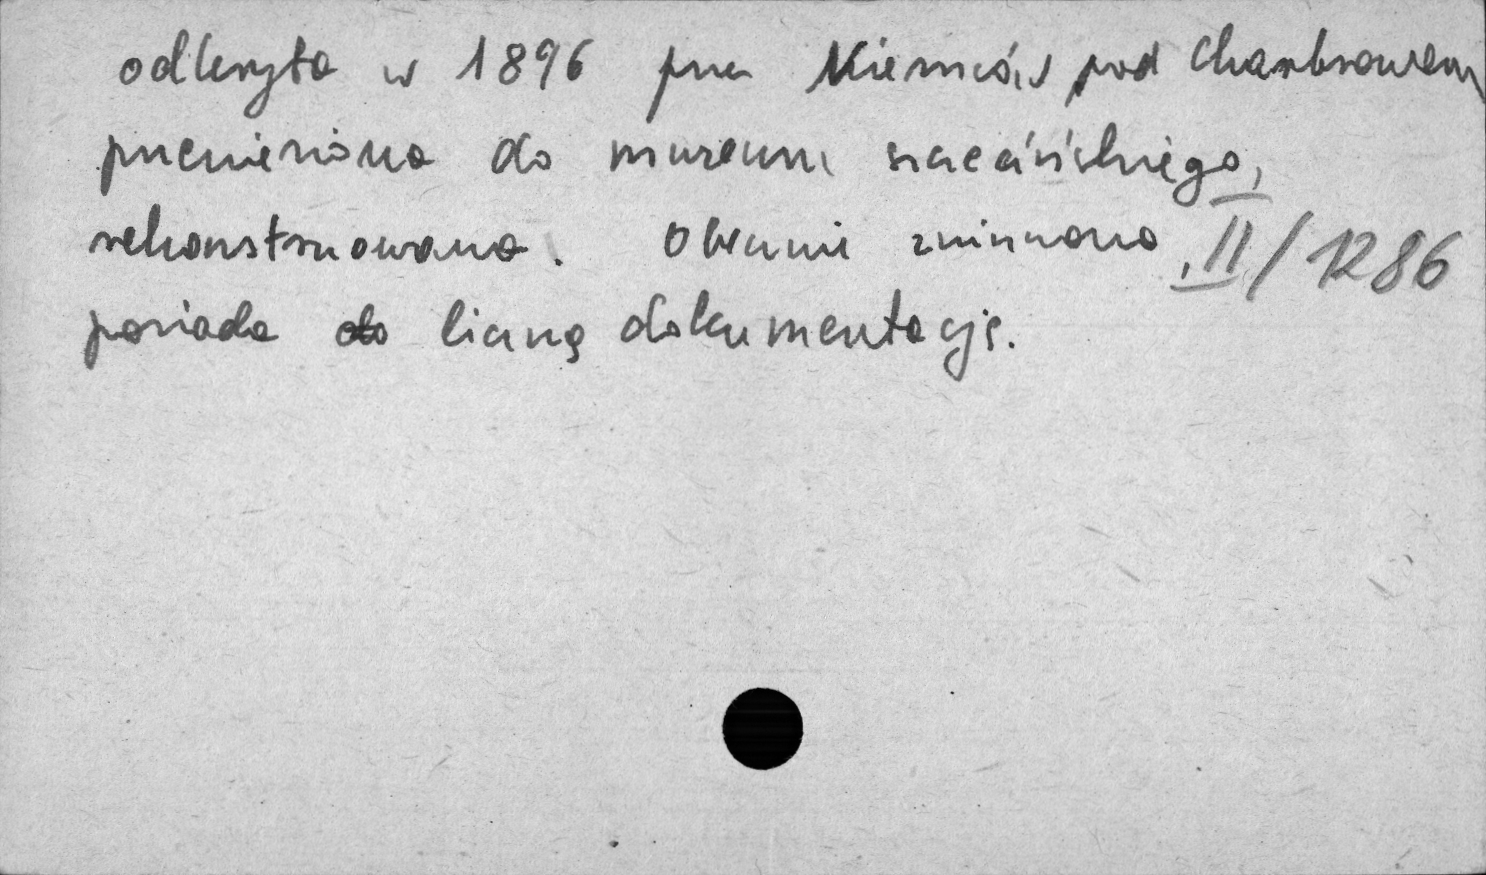 odkryta w 1896 przez Niemców pod Charbrowem
przeniesiona do muzeum szczecińskiego,
rekonstruowana. Obecnie zniszczona, II/1286
posiada do liczną dokumentację.